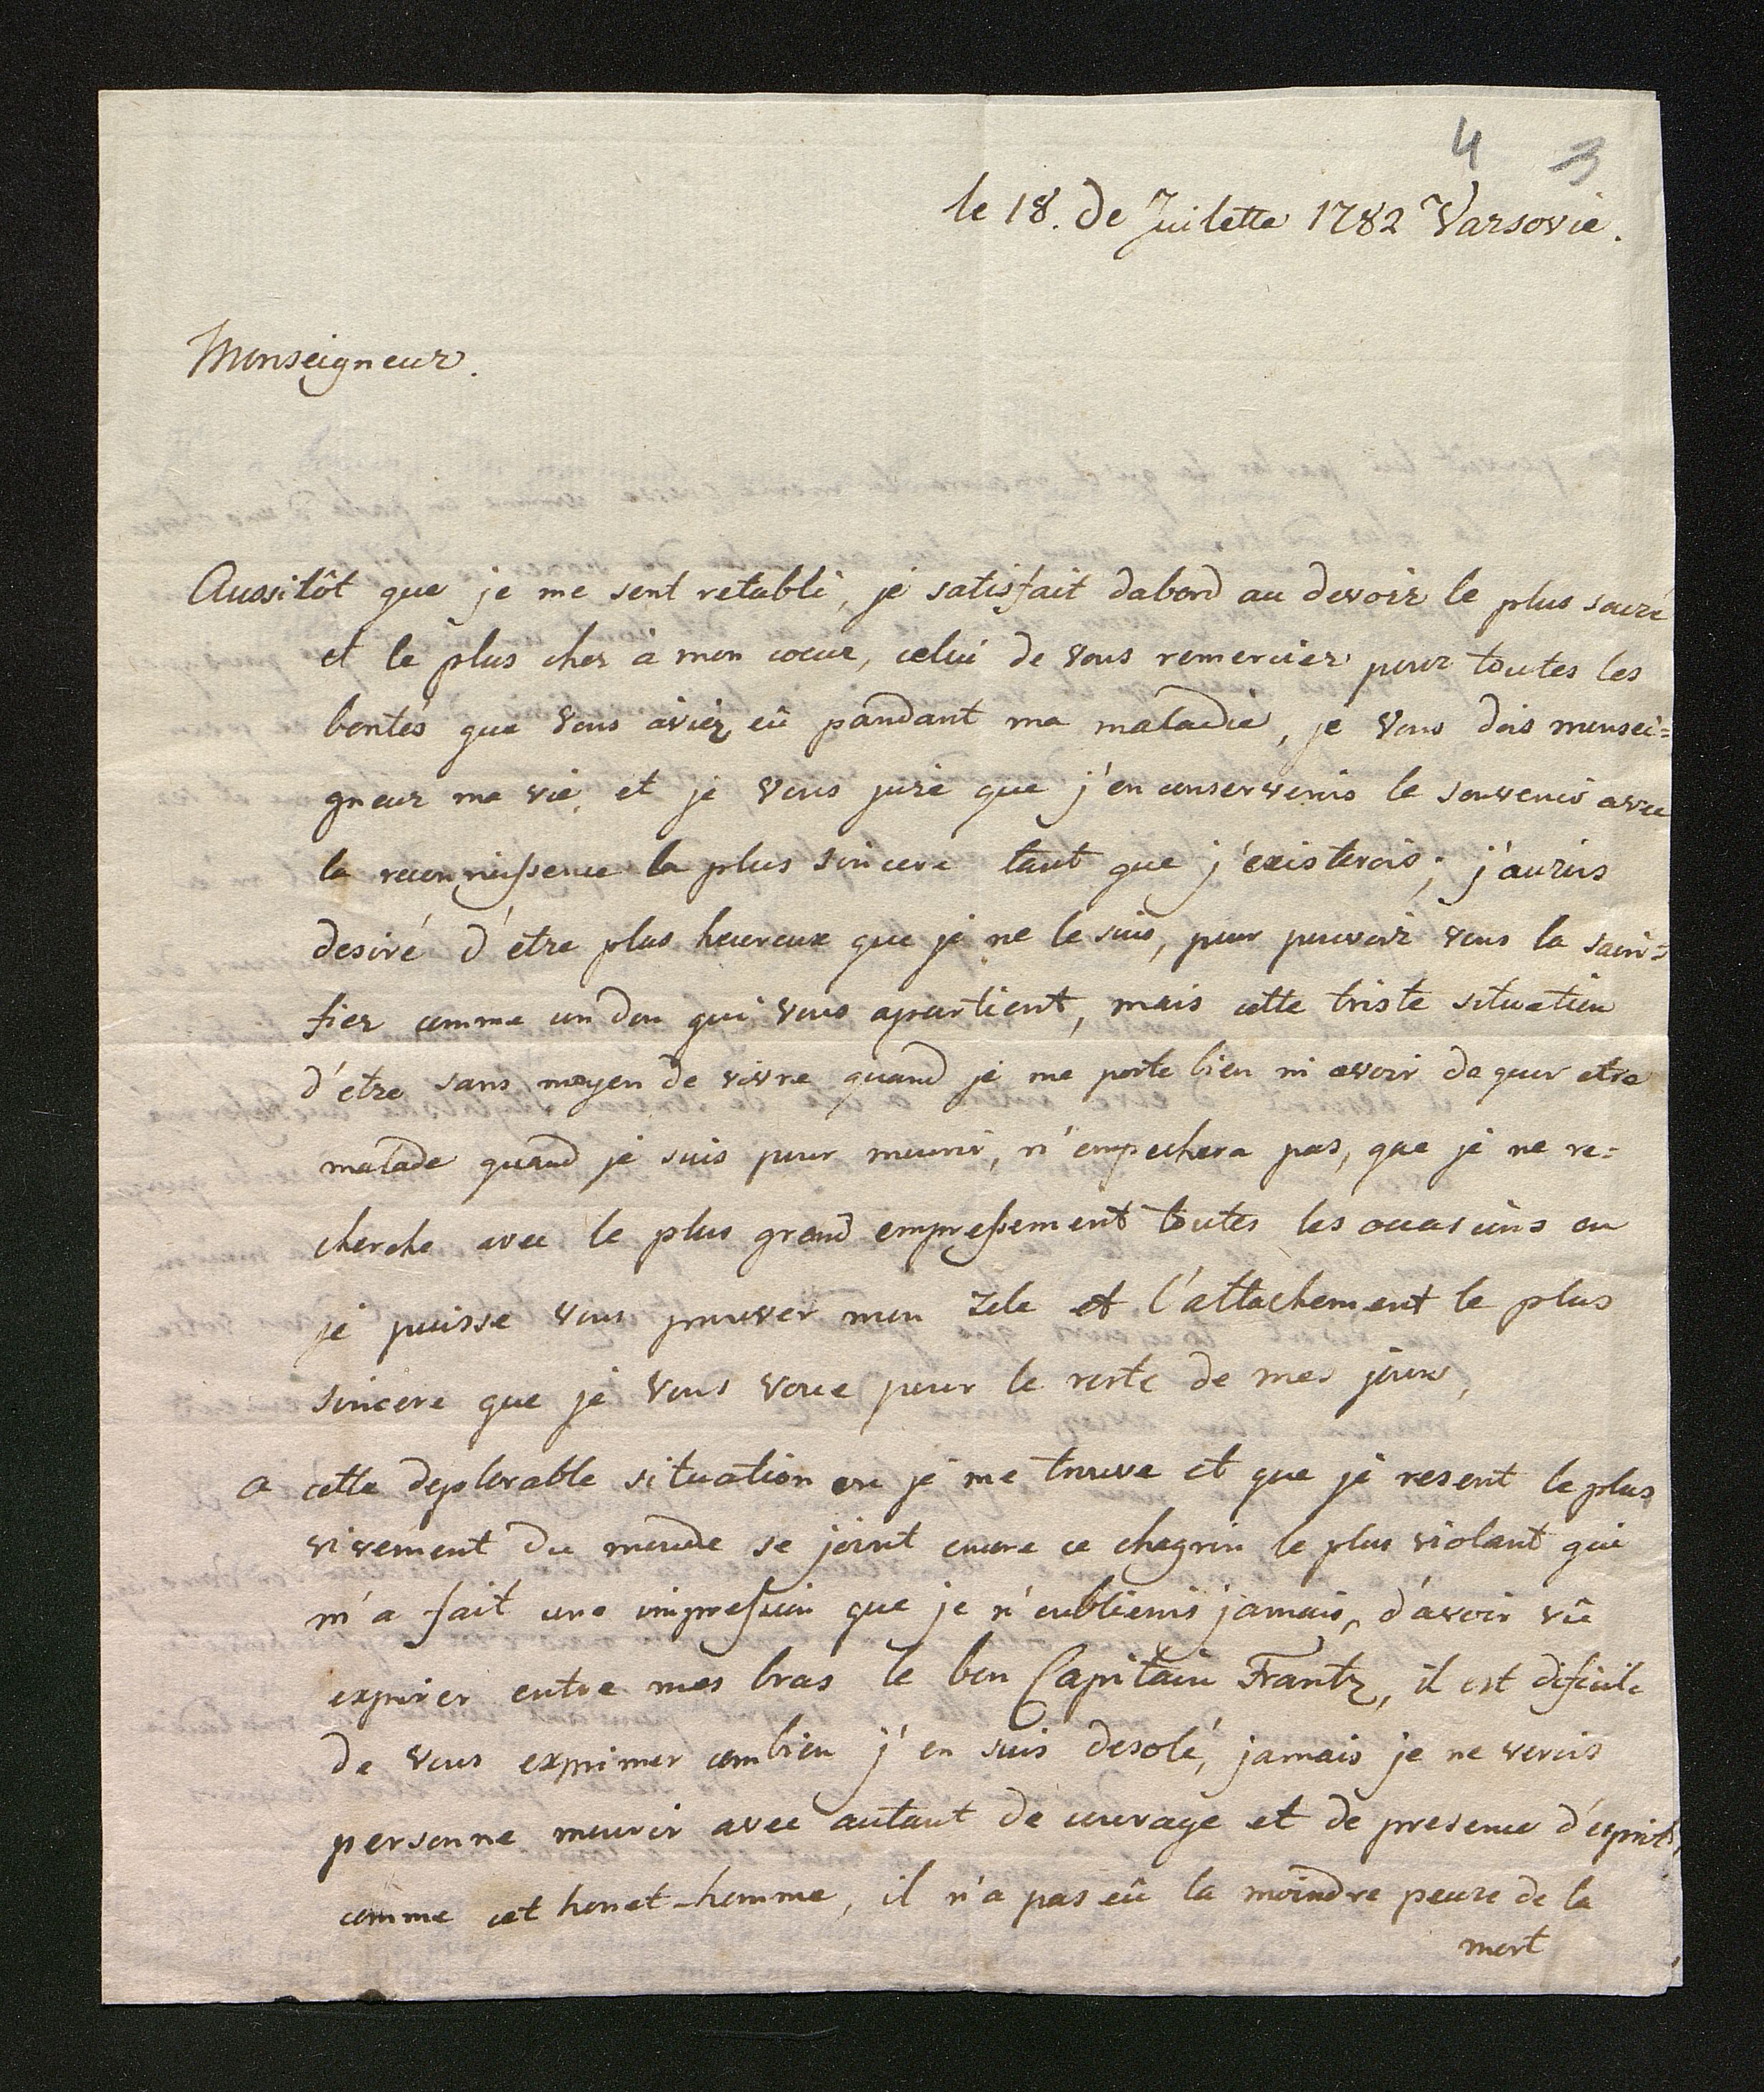 4 3
le 18. de Juilette 1782 Varsovie.
Monseigneur.
Aussitôt que je me sent retabli, je satisfait dabord au devoir le plus sacré
et le plus cher à mon coeur, celui de vous remercier pour toutes les
bontés que vous aviez eû pandant ma maladie, je vous dois monsei=
gneur ma vie, et je vous jure que j'en conserverois le souvenir avec
la reconnoissence la plus sincere tant que j'existerois; j'aurois
desiré d'etre plus heureux que je ne le suis, pour pouvoir vous la sacri=
fier comme un don qui vous apartient, mais cette triste situation
d'etre sans moyen de vivre quand je me porte bien ni avoir de quoi etre
malade quand je suis pour mourir, n'empechera pas, que je ne re=
cherche avec le plus grand empressement toutes les occasions ou
je puisse vous prouver mon zele et l'attachement le plus
sincere que je vous voue pour le reste de mes jours,
a cette deplorable situation ou je me trouve et que je resent le plus
vivement du monde se joint encore ce chagrin le plus violant qui
m'a fait une impression que je n'oublierois jamais, d'avoir vû
expirer entre mes bras le bon Capitain Frantz, il est dificile
de vous exprimer combien j'en suis desolé, jamais je ne verois
personne mourir avec autant de courage et de presence d'esprit,
comme cet honet-homme, il n'a pas eû la moindre peure de la
mort